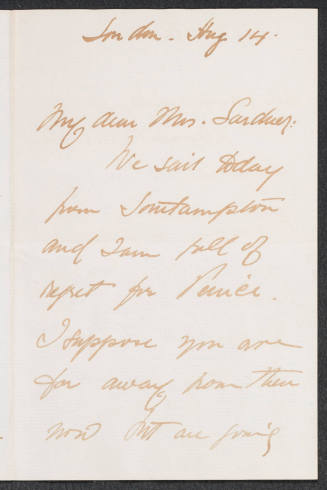 London. Aug 14.
My dear Mrs. Gardner:
We sail today
from Southampton
and I am full of
regret for Venice.
I suppose you are
far away from there
now but are going